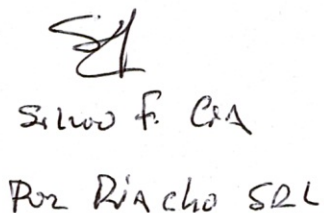 Silvio F. Cia
Por Riacho SRL